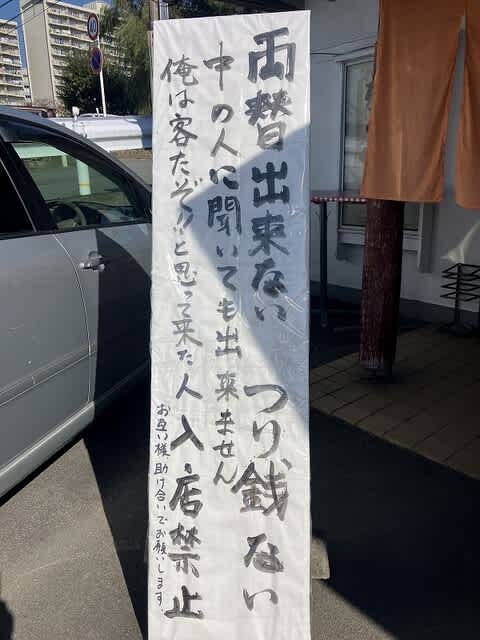 両替出来ない つり銭ない
中の人に聞いても出来ません
俺は客だぞ!!と思って来た人入店禁止
お互い様、助け合いでお願いします。